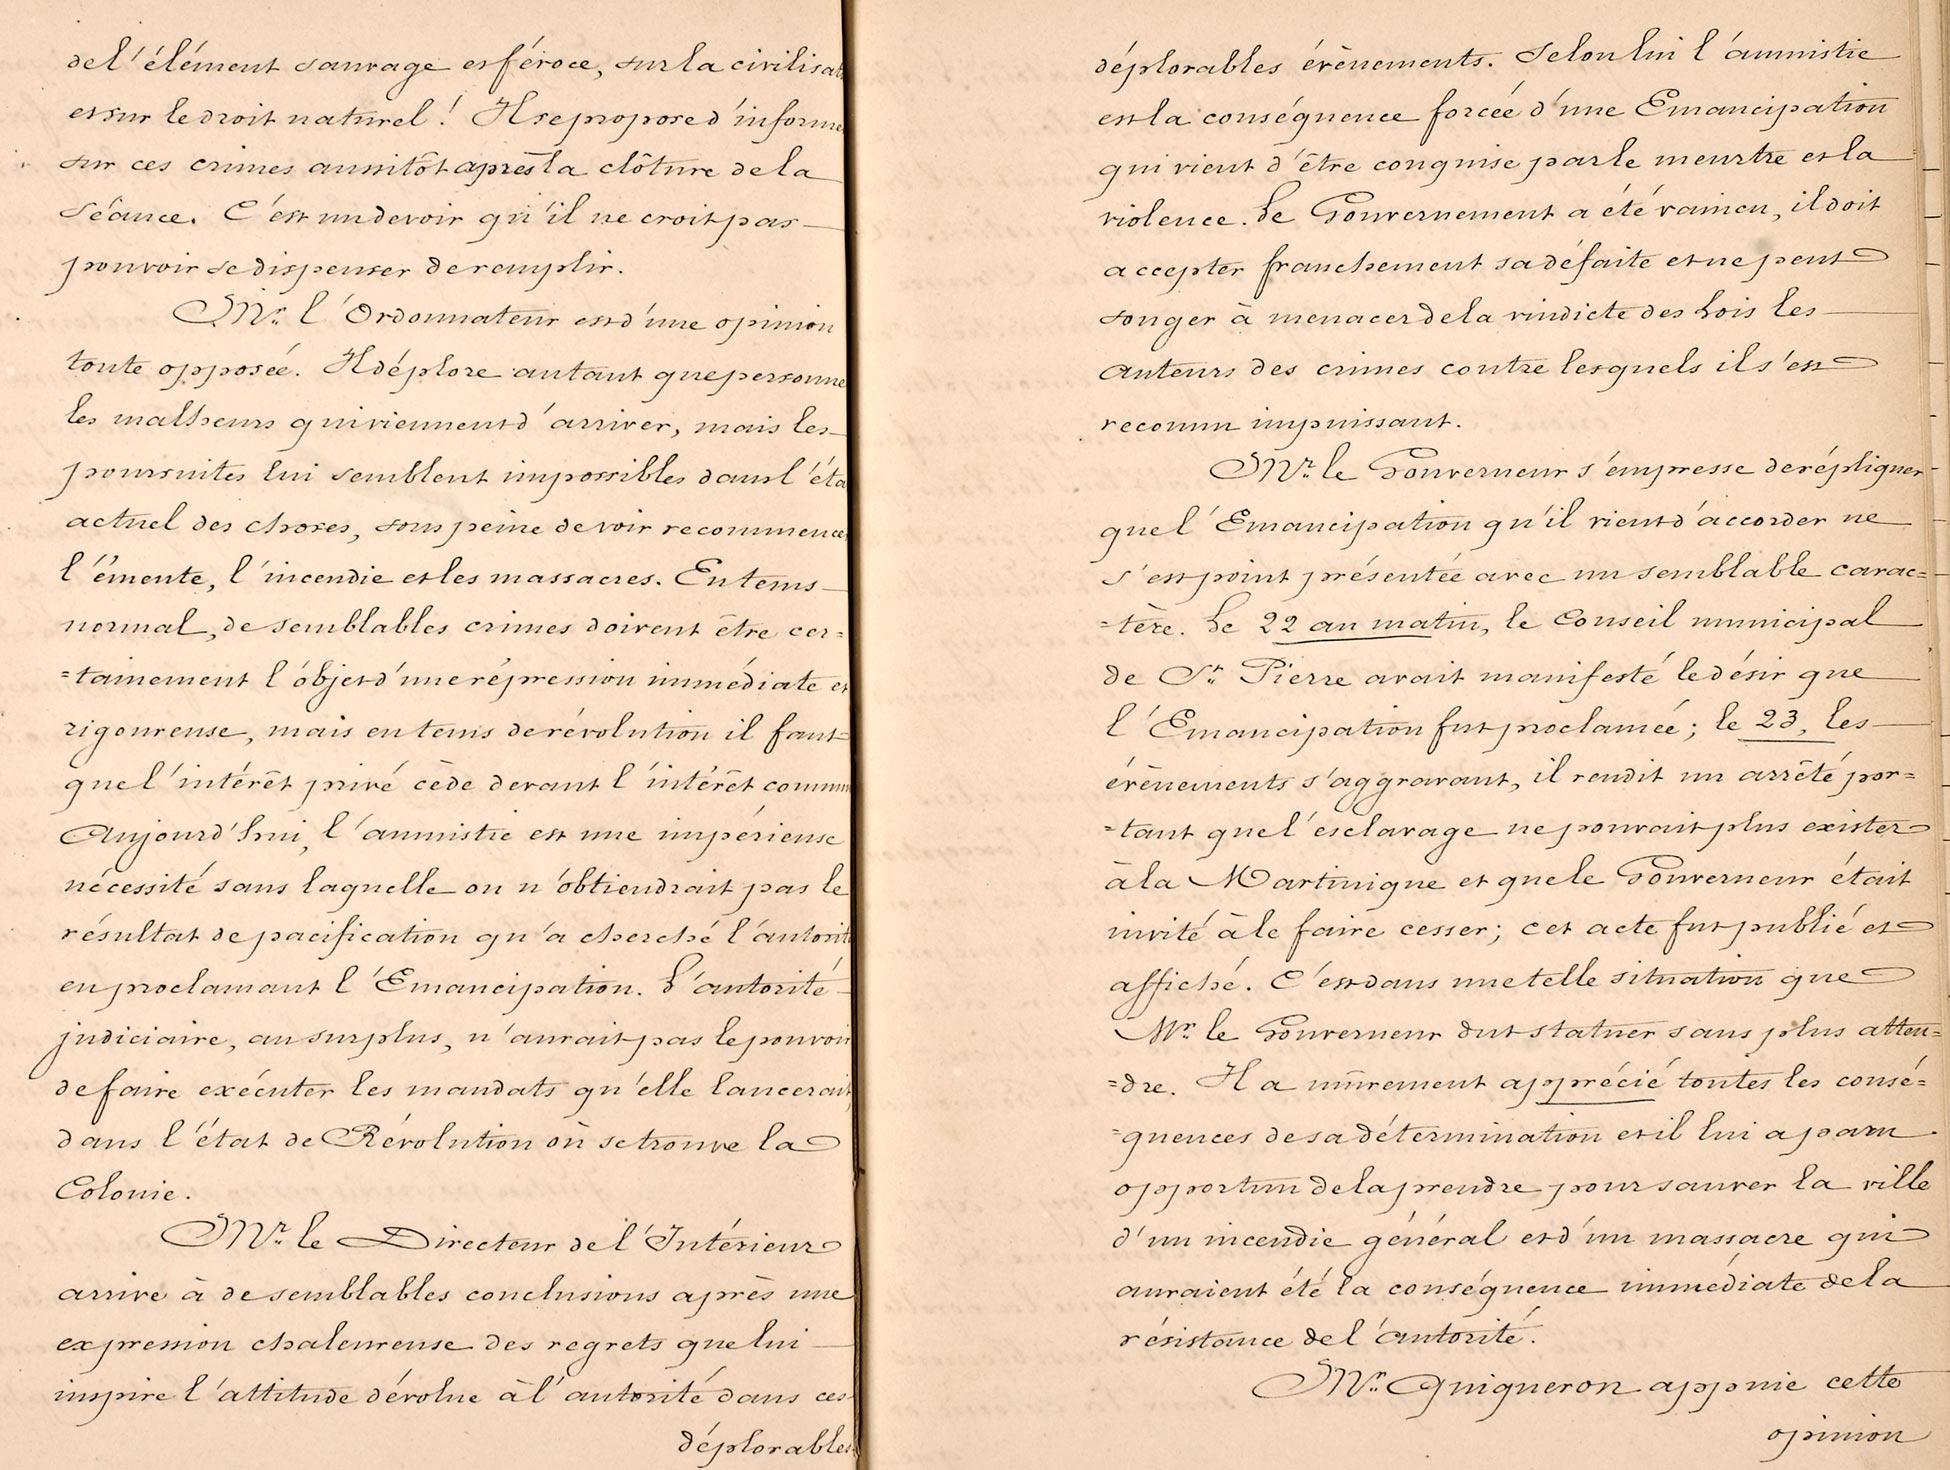 de l'élément sauvage et féroce, sur la civilisati
et sur le droit naturel ! Il se propose d'informe
sur ces crimes aussitôt après la clôture de la
Séance. C'est un devoir qu'il ne croit pas
pouvoir se dispenser de remplir.
Mr. l'Ordonnateur est d'une opinion
toute opposée. Il déplore autant que personne
les malheurs qui viennent d'arriver, mais les
poursuites lui semblent impossibles dans l'éta
actuel des choses, sous peine de voir recommencer
l'émeute, l'incendie et les massacres. En tems
normal, de semblables crimes doivent être cer=
=tainement l'objet d'une répression immédiate et
rigoureuse, mais en tems de révolution il faut
que l'intérêt privé cède devant l'intérêt commun
Aujourd'hui, l'amnistie est une impérieuse
nécessité sans laquelle on n'obtiendrait pas le
résultat de pacification qu'a cherché l'autorité
en proclamant l'Emancipation. L'autorité
judiciaire, au surplus, n'aurait pas le pouvoir
de faire exécuter les mandats qu'elle lancerait,
dans l'état de Révolution où se trouve la
Colonie.
Mr. le Directeur de l'Intérieur
arrive à de semblables conclusions après une
expression chaleureuse des regrets que lui
inspire l'attitude dévolue à l'autorité dans ces
déplorables
déplorables évènements. Selon lui l'amnistie
est la conséquence forcée d'une Emancipation
qui vient d'être conquise par le meurtre et la
violence. Le Gouvernement a été vaincu, il doit
accepter franchement sa défaite et ne peut
songer à menacer de la vindicte des Lois les
auteurs des crimes contre lesquels il s'est
reconnu impuissant.
Mr. le Gouverneur s'empresse de répliquer
que l'Emancipation qu'il vient d'accorder ne
s'est point présentée avec un semblable carac=
=tère. Le 22 au matin, le Conseil municipal
de St. Pierre avait manifesté le désir que
l'Emancipation fut proclamée ; le 23, les
évènements s'aggravant, il rendit un arrêté por=
=tant que l'esclavage ne pouvait plus exister
à la Martinique et que le Gouverneur était
invité à le faire cesser ; cet acte fut publié et
affiché. C'est dans une telle situation que
Mr. le Gouverneur dut statuer sans plus atten=
=dre. Il a mûrement apprécié toutes les consé=
=quences de sa détermination et il lui a paru
opportun de la prendre pour sauver la ville
d'un incendie général et d'un massacre qui
auraient été la conséquence immédiate de la
résistance de l'autorité.
Mr. Guigneron appuie cette
opinion